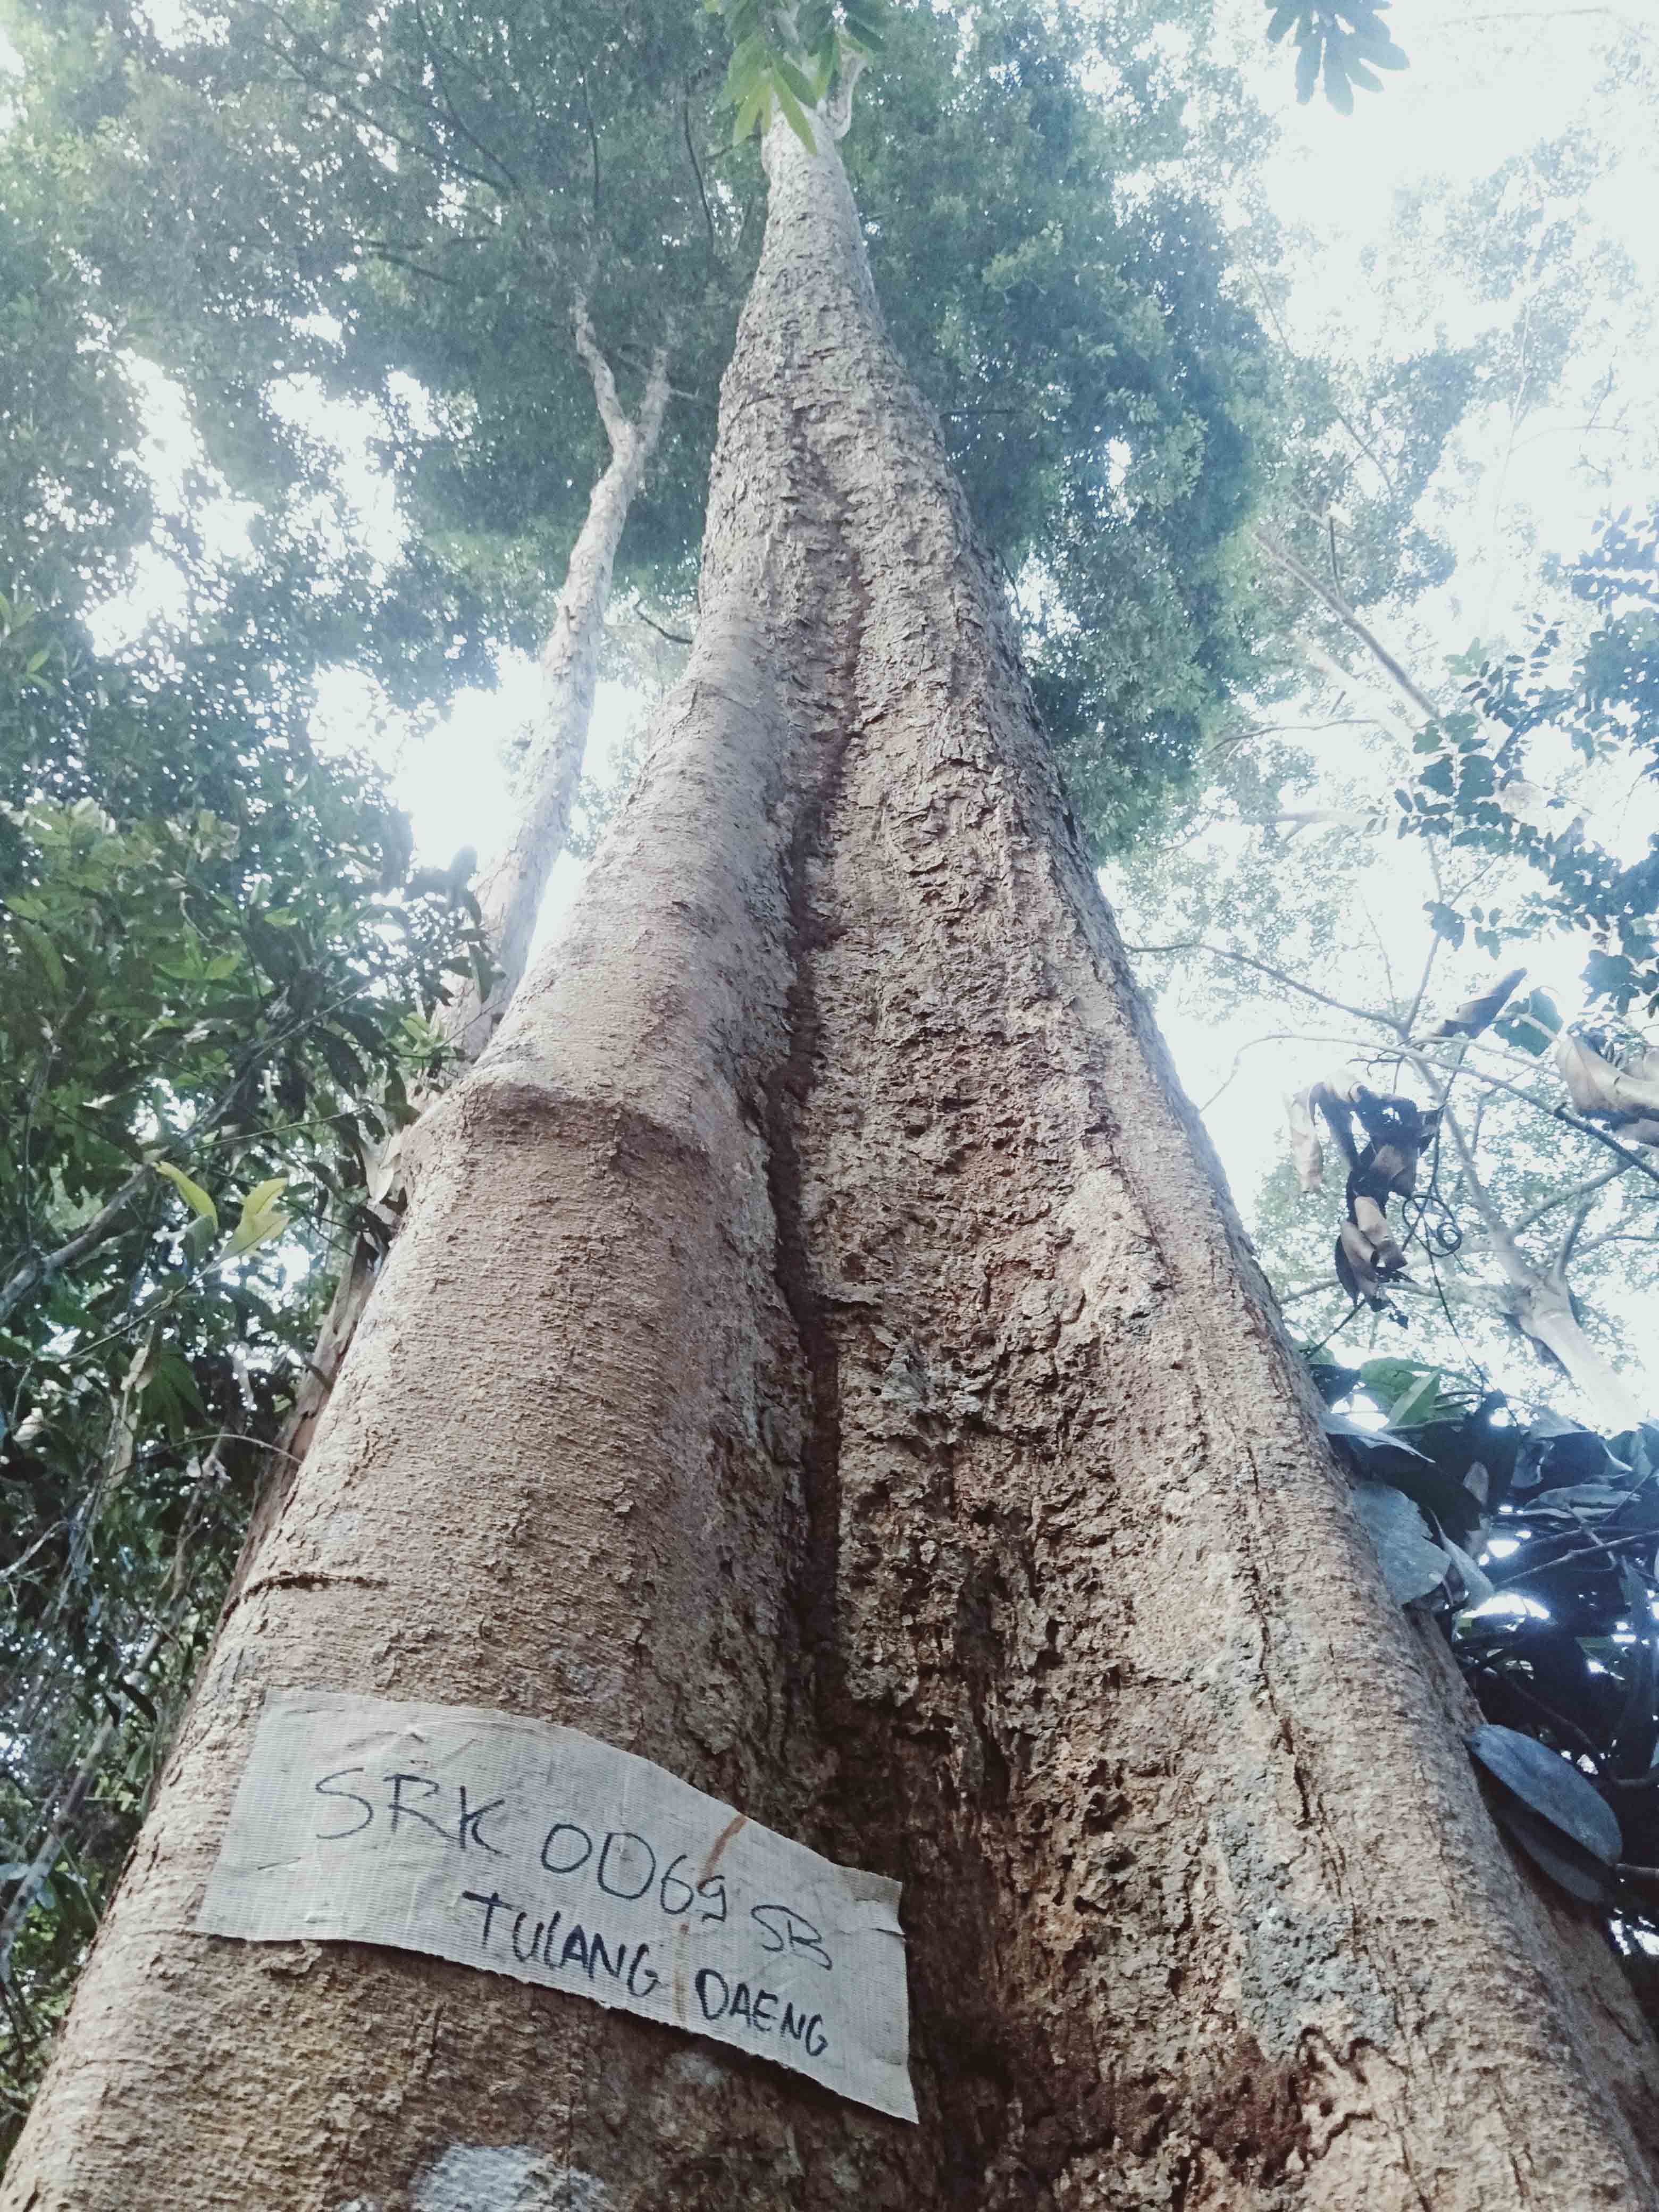 SRK 0069 SB
TULANG DAENG